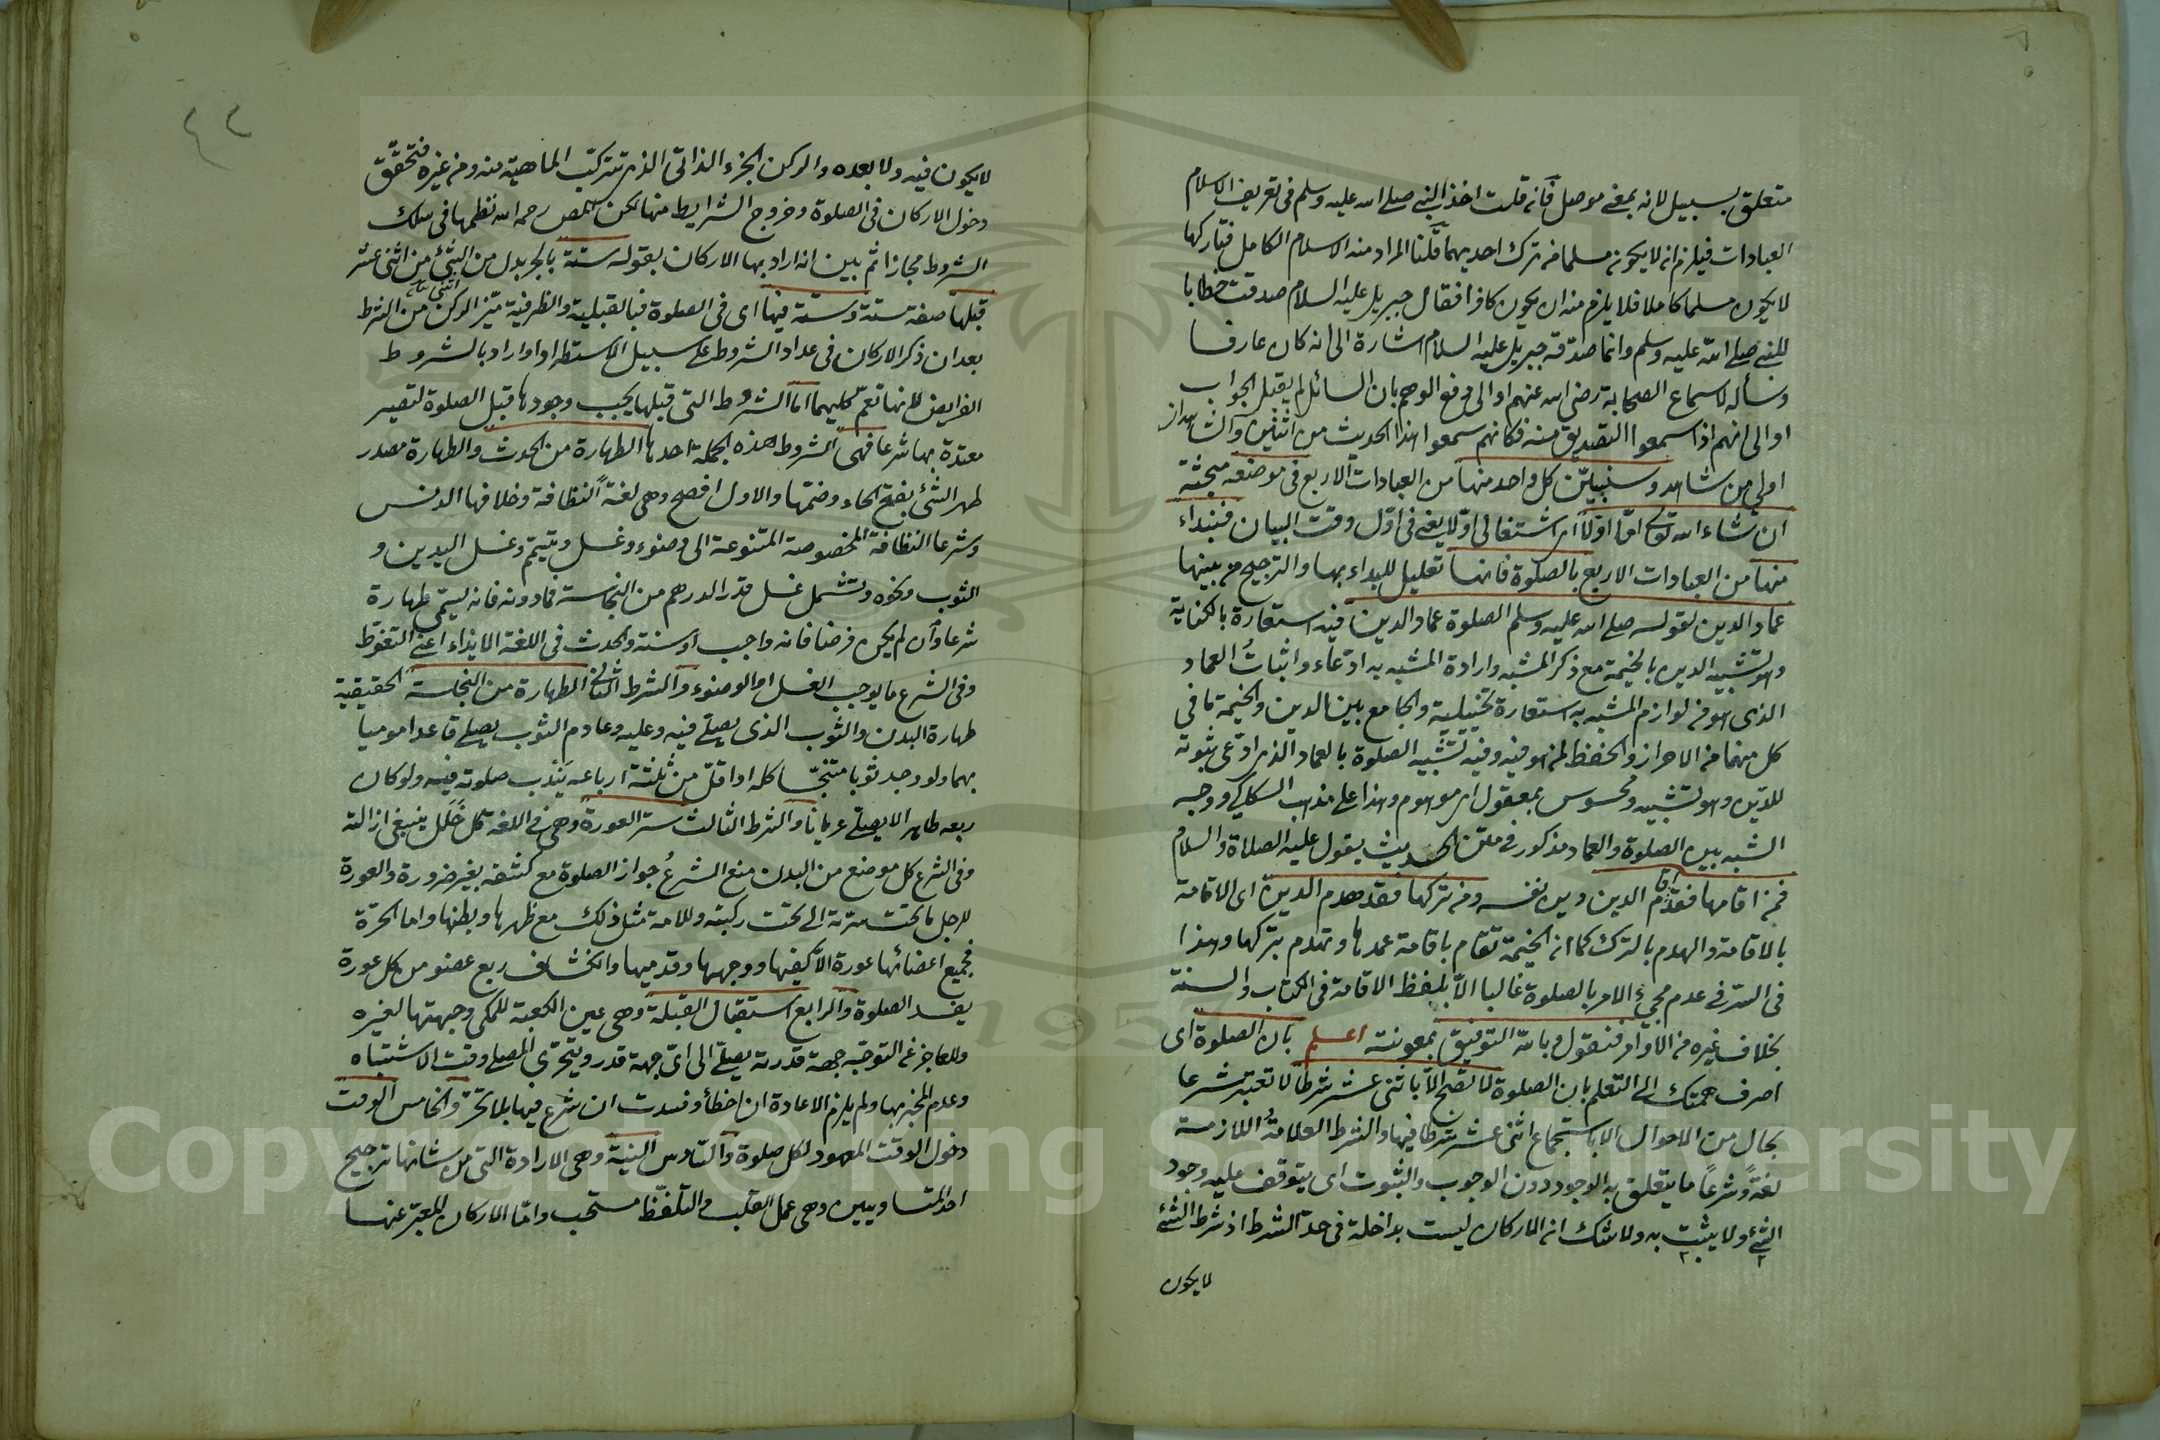 متعلق بسبيل لانه بمعنى موصل فانه قلت اخذ النبي صلى الله عليه وسلم في تعريف الاسلام
العبادات فيلزم انه لا يكون مسلما من ترك احديهما قلنا المراد منه الاسلام الكامل فتاركها
لا يكون مسلما كاملا فلا يلزم منه ان يكون كافرا فقال جبريل عليه السلام صدقت خطابا
للنبي صلى الله عليه وسلم وانما صدقه جبريل عليه السلام اشارة الى انه كان عارفا
وسأله لاسماع الصحابة رضي الله عنهم او الى دفع الوهم بان السائل لم يقبل الجواب
او الى انهم اذا سمعوا التصديق منه فكانهم سمعوا هذا الحديث من اثنين والشاهدان
اولى من شاهد وسنبين كل واحد منها من العبادات الاربع في موضعه مبحثه
ان شاء الله تعالى اما اولا اى اشتغالى اولا يعنى في اول وقت البيان فنبداء
منها من العبادات الاربع بالصلوة فانها تعليل للبداء بها والترجيح من بينها
عماد الدين لقوله صلى الله عليه وسلم الصلوة عماد الدين فيه استعارة بالكناية
وهو تشبيه الدين بالخيمة مع ذكر المشبه وارادة المشبه به ادعاء واثبات العماد
الذى هو من لوازم المشبه به استعارة تخييلية والجامع بين الدين والخيمة ما في
كل منهما من الاحراز والحفظ لمن هو فيه وفيه تشبيه الصلوة بالعماد الذى ادعى ثبوته
للدين وهو تشبيه محسوس بمعقول اى موهوم وهذا على مذهب السكاكي ووجه
الشبه بين الصلوة والعماد مذكور في متن الحديث بقول عليه الصلاة والسلام
فمن اقامها فقد اقام الدين ودين نفسه ومن تركها فقد هدم الدين اى الاقامة
بالاقامة والهدم بالترك كما ان الخيمة تقام باقامة عمدها وتهدم بتركها وهذا
في السر في عدم مجيء الامر بالصلوة غالبا الا بلفظ الاقامة في الكتاب والسنة
بخلاف غيره من الاوامر فنقول وبالله التوفيق بمعونته اعلم بان الصلوة اى
اصرف همتك الى التعلم بان الصلوة لا تصح الا باثنى عشر شرطا لا تعتبر شرعا
بحال من الاحوال الا باستجماع اثنى عشر شرطا فيها والشرط العلامة اللازمة
لغة وشرعا ما يتعلق به الوجود دون الوجوب والثبوت اى يتوقف عليه وجود
الشئ ولا يثبت به ولا شك ان الاركان ليست بداخلة في حد الشرط اذ شرط الشئ
لا يكون
٤٢
لا يكون فيه ولا بعده والركن الجزء الذاتي الذى تتركب الماهية منه ومن غيره فتحقق
دخول الاركان في الصلوة وخروج الشرايط منها لكن المص رحمه الله نظمها في سلك
الشروط مجازا ثم بين انه اراد بها الاركان بقوله ستة بالجر بدل من اثنى عشر
قبلها صفة ستة وستة فيها اى في الصلوة فبالقبلية والظرفية ميز الركن من الشرط
بعد ان ذكر الاركان في عداد الشروط على سبيل الاستطراد او اراد بالشروط
الفرايض لانها تعم كليهما اما الشروط التي قبلها يجب وجودها قبل الصلوة لتصير
معتدة بها شرعا فهى الشروط هذه الجملة احدها الطهارة من الحدث والطهارة مصدر
طهر الشئ بفتح الهاء وضمها والاول افصح وهى لغة النظافة وخلافها الدنس
وشرعا النظافة المخصوصة المتنوعة الى وضوء وغسل وتيمم وغسل اليدين و
الثوب ونحوه وتشمل غسل قدر الدرهم من النجاسة فما دونه فانه يسمى طهارة
شرعا وان لم يكن فرضا فانه واجب او سنة والحدث في اللغة الايذاء اعنى التغوط
وفي الشرع ما يوجب الغسل او الوضوء والشرط الثاني الطهارة من النجاسة الحقيقية
طهارة البدن والثوب الذى يصلى فيه وعليه وعادم الثوب يصلى قاعدا موميا
بهما ولو وجد ثوبا متنجسا كله او اقل من ثلثة ارباعه يندب صلوته فيه ولو كان
ربعه طاهرا لا يصلى عريانا والشرط الثالث ستر العورة وهى في اللغة كل خلل ينبغى ازالته
وفي الشرع كل موضع من البدن منع الشرع جواز الصلوة مع كشفه بغير ضرورة والعورة
للرجل ما تحت سرته الى تحت ركبته وللامة مثل ذلك مع ظهرها وبطنها واما الحرة
فجميع اعضائها عورة الا كفيها ووجهها وقدميها وانكشاف ربع عضو من كل عورة
يفسد الصلوة والرابع استقبال القبلة وهى عين الكعبة للمكى وجهتها لغيره
وللعاجز عن التوجه جهة قدرته يصلى الى اى جهة قدر ويتحرى المصلى وقت الاشتباه
وعدم المخبر بها ولم يلزم الاعادة ان اخطأ وفسدت ان شرع فيها بلا تحر والخامس الوقت
دخول الوقت المعهود لكل صلوة والسادس النية وهى الارادة التى من شانها ترجيح
احد المتساويين وهى عمل القلب والتلفظ مستحب واما الاركان المعبر عنها
Copyright © King Saud University
1957